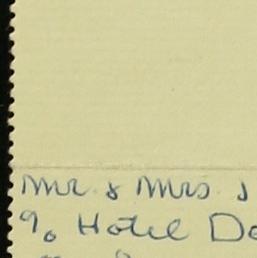 Mr. & Mrs. J
% Hotel De